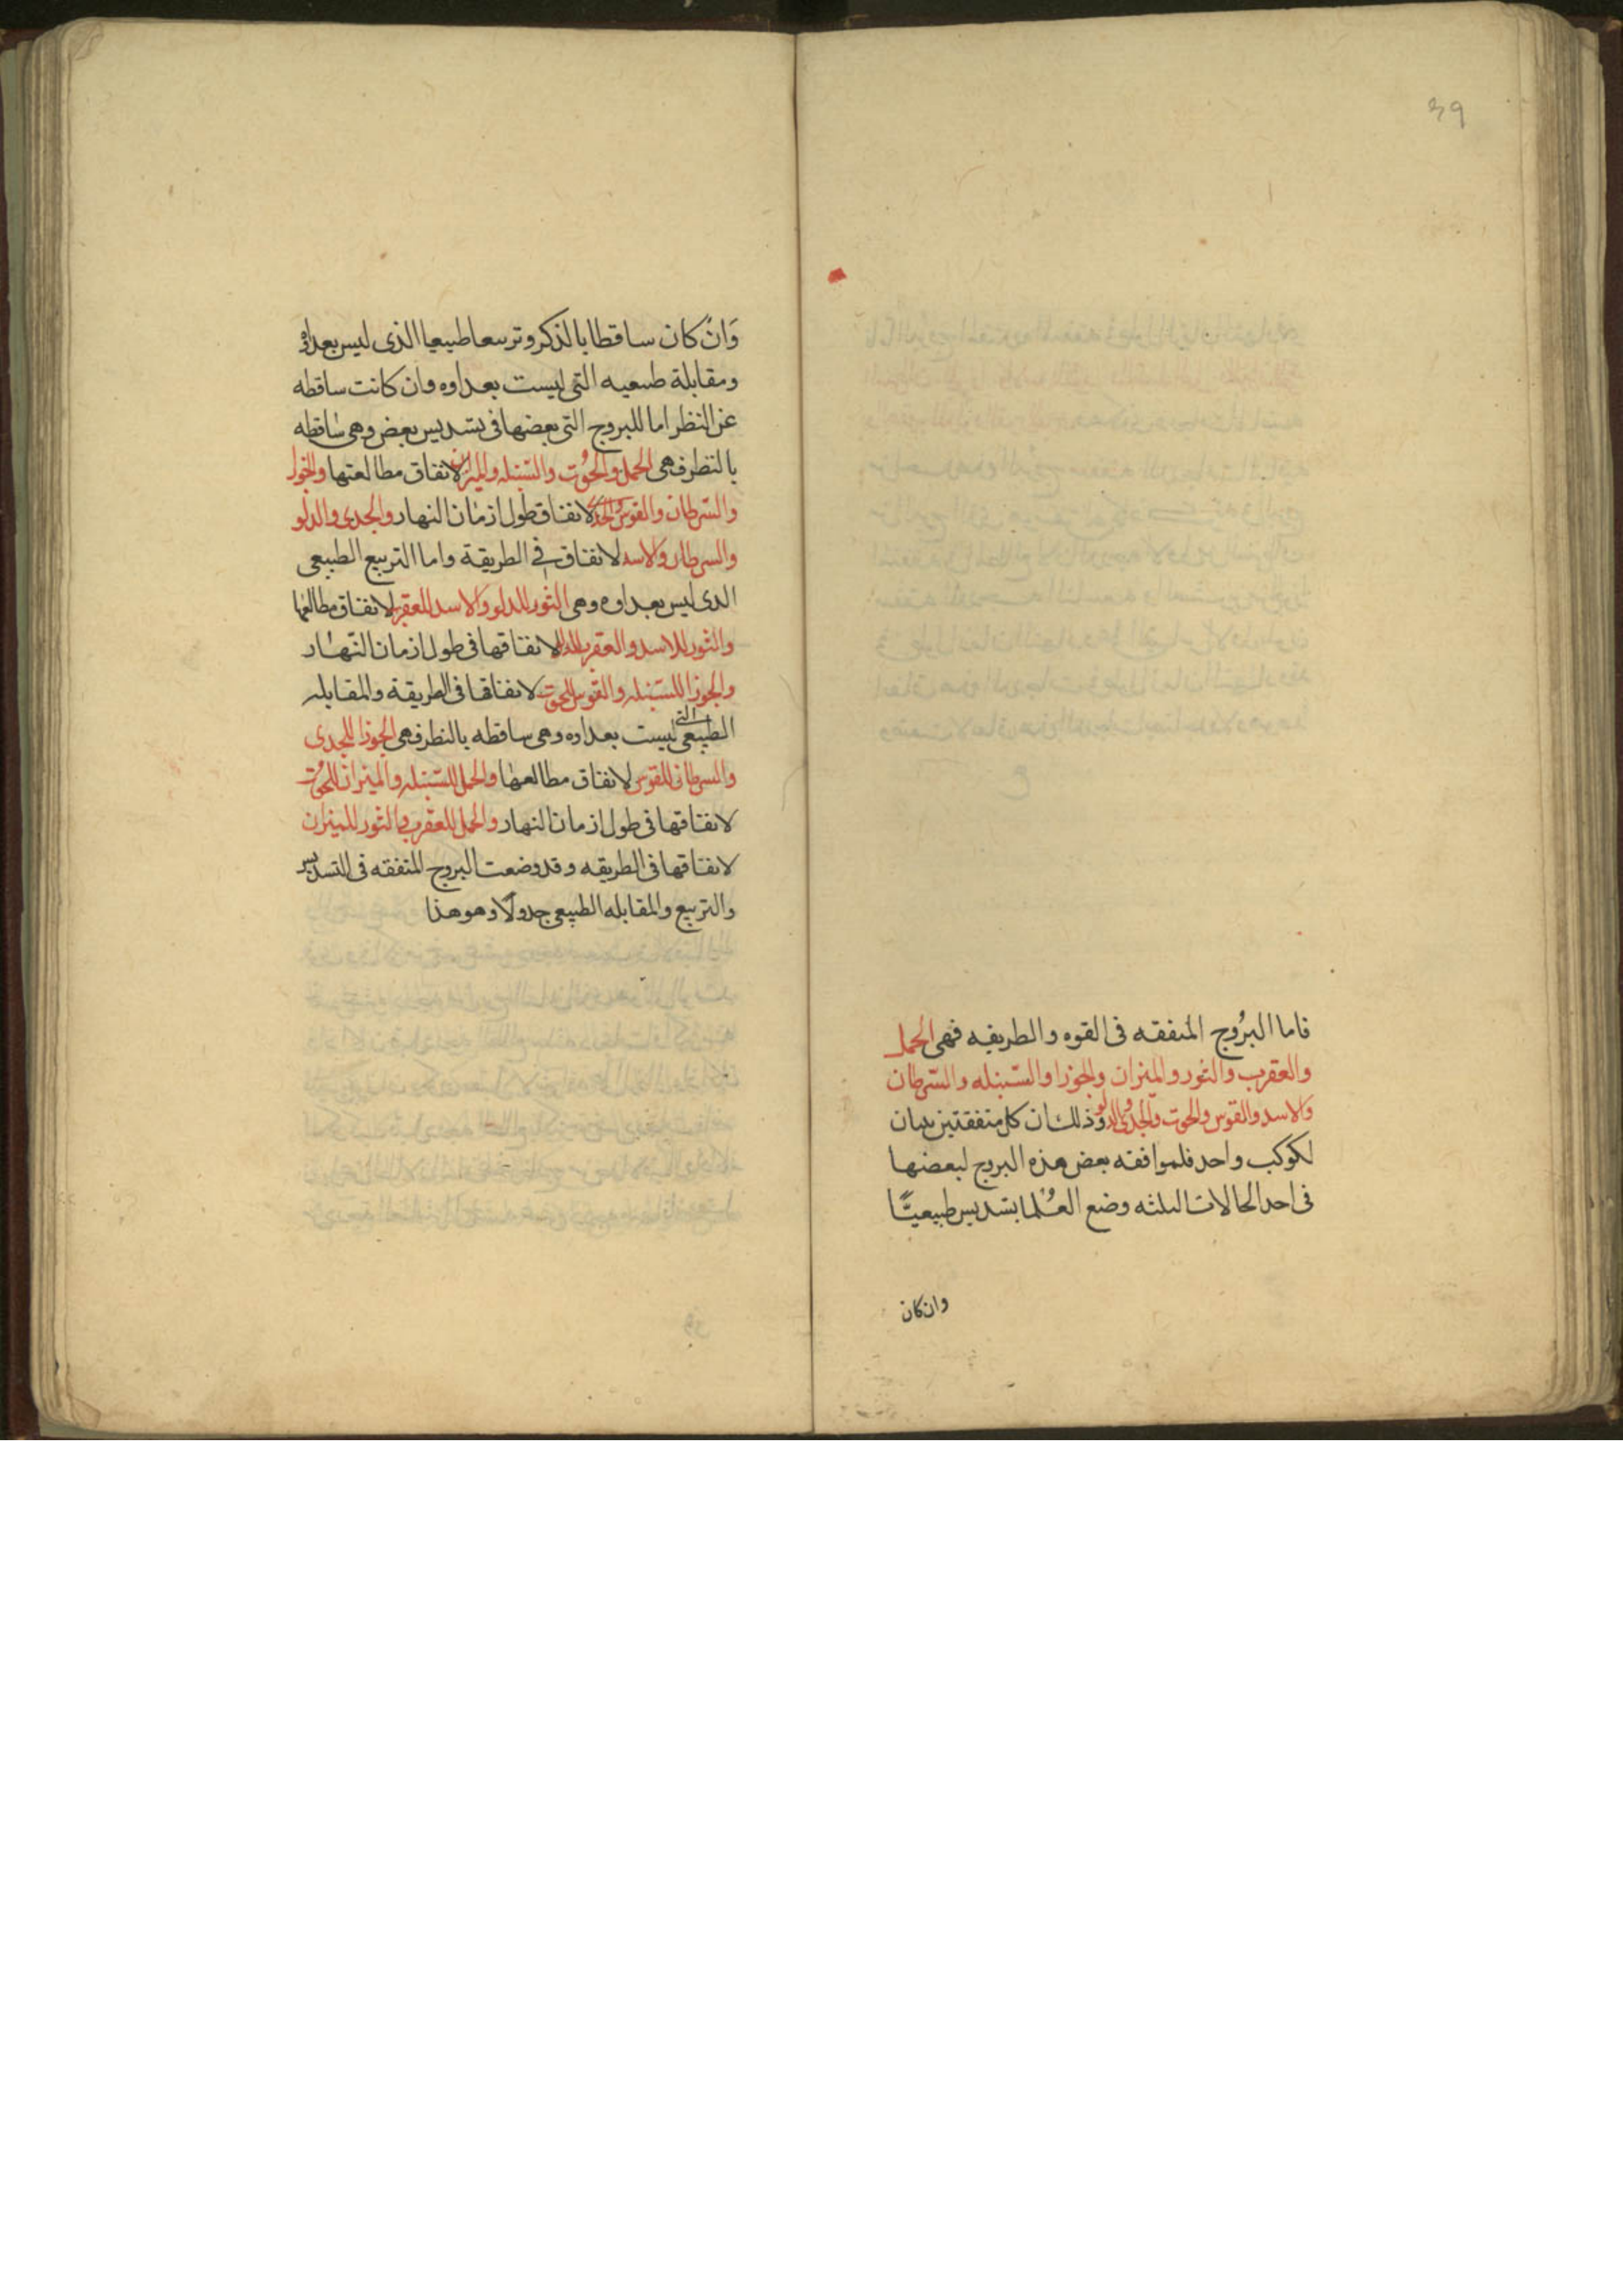 39
فاما البرُوج المتفقه فى القوه والطريقه فهى الحمل
والعقرب والثور والميزان والجوزا والسّنبله والسّرطان
والاسد والقوس والحوت والجدى والدلو وذلك ان كل متفقتين بيتان
لكوكب واحد فلموافقه بعض هذه البروج لبعضها
فى احد الحالات الثلثه وضع العُلما بتسديس طبيعيًّا
وان كان
وَان كان ساقطا بالذكر وتربيعا طبيعيا الذى ليس بعداوه
ومقابلة طبيعيه التى ليست بعداوه وان كانت ساقطه
عن النظر اما للبروج التى بعضها فى تسديس بعض وهى ساقطه
بالنظر فهى الحمل والحُوت والسّنبله والميزان لاتفاق مطالعتها والجوزا
والسّرطان والقوس والجدى لاتفاق طول ازمان النهار والجدى والدلو
والسرطان والاسد لاتفاق فى الطريقة واما التربيع الطبيعى
الذى ليس بعداوه وهى الثور للدلو والاسد للعقرب لاتفاق مطالعها
والثور للاسد والعقرب للدلو لاتفاقها فى طول ازمان النهـار
والجوزا للسّنبله والقوس للحوت لاتفاقها فى الطريقة والمقابله
الطبيعى التى ليست بعداوه وهى ساقطه بالنظر فهى الجوزا للجدى
والسرطان للقوس لاتفاق مطالعها والحمل للسّنبله والميزان للحُوت
لاتفاقها فى طول ازمان النهار والحمل للعقرب والثور للميزان
لاتفاقها فى الطريقه وقد وضعت البروج المتفقه فى التسديس
والتربيع والمقابله الطبيعى جدولًا وهو هذا